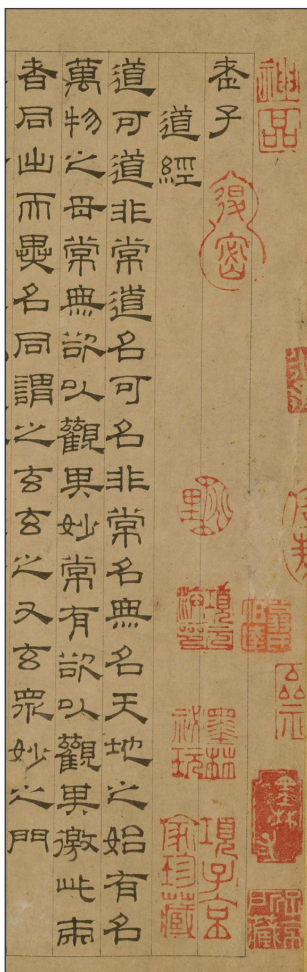 神品
老子
道經
道可道非常道名可名非常名無名天地之始有名
萬物之母常無欲以觀其妙常有欲以觀其徼此兩
者同出而異名同謂之玄玄之又玄眾妙之門
墨林祕玩
項子京家珍藏